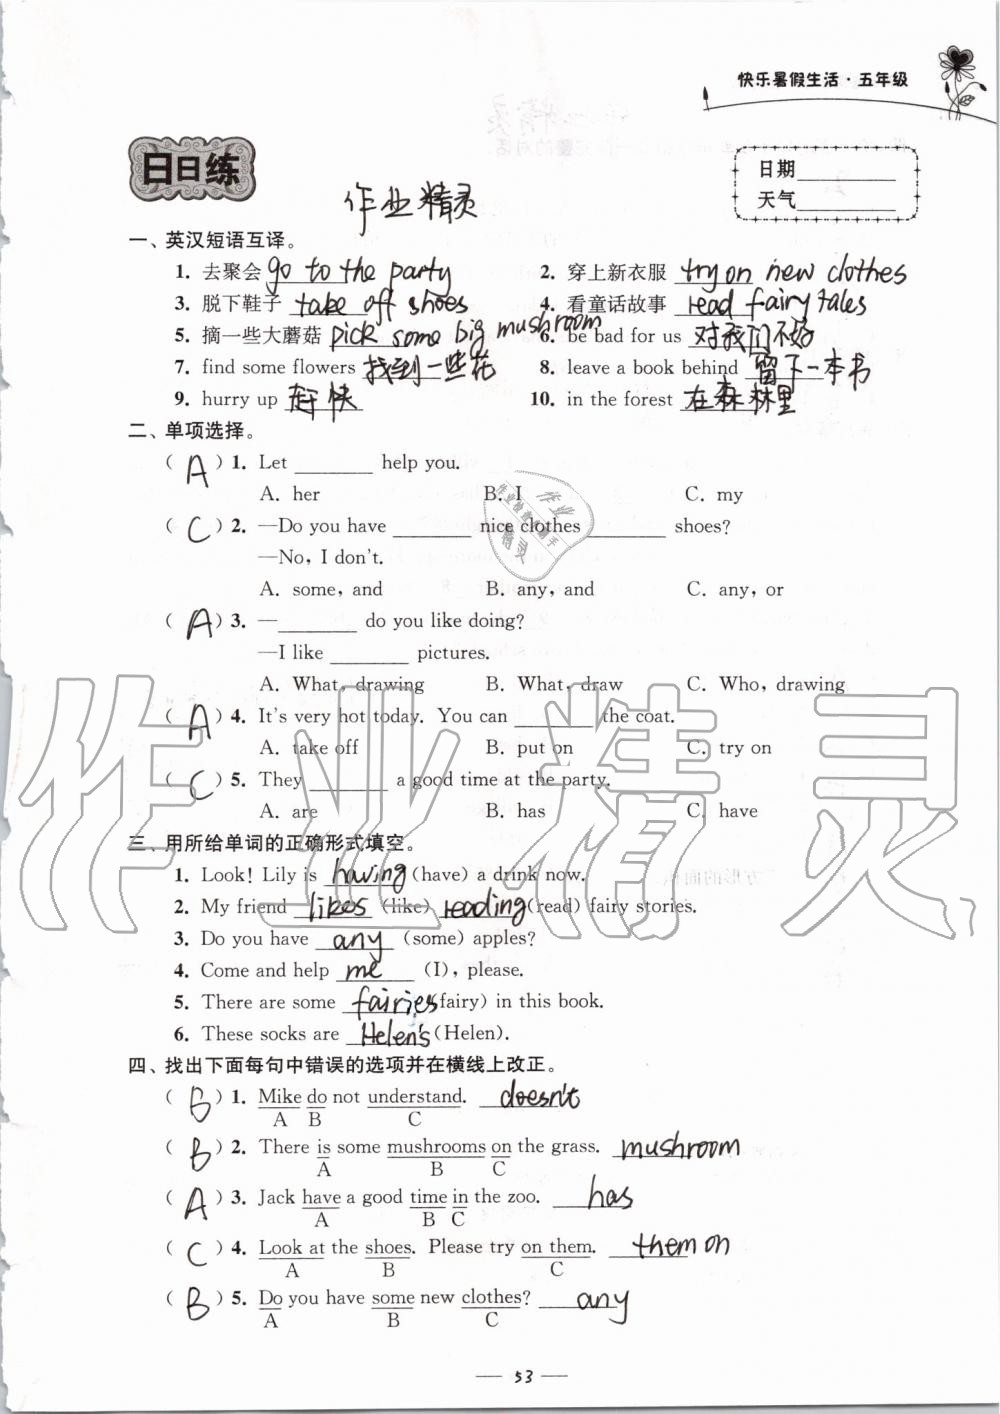 快乐暑假生活·五年级
日日练
日期
天气
作业精灵
一、英汉短语互译。
1. 去聚会 go to the party 2. 穿上新衣服 try on new clothes
3. 脱下鞋子 take off shoes 4. 看童话故事 read fairy tales
5. 摘一些大蘑菇 pick some big mushroom 6. be bad for us 对我们不好
7. find some flowers 找到一些花 8. leave a book behind 留下一本书
9. hurry up 赶快 10. in the forest 在森林里
二、单项选择。
( A ) 1. Let ________ help you.
A. her B. I C. my
( C ) 2. —Do you have ________ nice clothes ________ shoes?
—No, I don't.
A. some, and B. any, and C. any, or
( A ) 3. —________ do you like doing?
—I like ________ pictures.
A. What, drawing B. What, draw C. Who, drawing
( A ) 4. It's very hot today. You can ________ the coat.
A. take off B. put on C. try on
( C ) 5. They ________ a good time at the party.
A. are B. has C. have
三、用所给单词的正确形式填空。
1. Look! Lily is having (have) a drink now.
2. My friend likes (like) reading (read) fairy stories.
3. Do you have any (some) apples?
4. Come and help me (I), please.
5. There are some fairies fairy) in this book.
6. These socks are Helen's (Helen).
四、找出下面每句中错误的选项并在横线上改正。
( B ) 1. Mike do not understand. doesn't
A B C
( B ) 2. There is some mushrooms on the grass. mushroom
A B C
( A ) 3. Jack have a good time in the zoo. has
A B C
( C ) 4. Look at the shoes. Please try on them. them on
A B C
( B ) 5. Do you have some new clothes? any
A B C
— 53 —
作业精灵